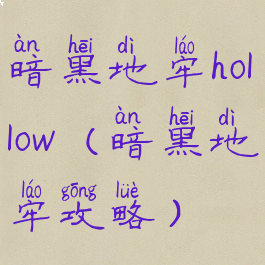 àn hēi dì láo
暗黑地牢hol
àn hēi dì
low（暗黑地
láo gōng lüè
牢攻略）